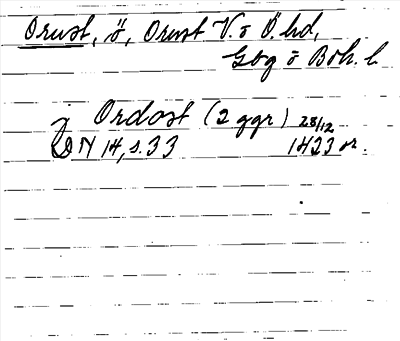 Orust, ö, Orust V. o Ö. hd,
Gbg o Boh. l
J Ordost (2 ggr) 28/12
DN 14, s. 33 1423 or.